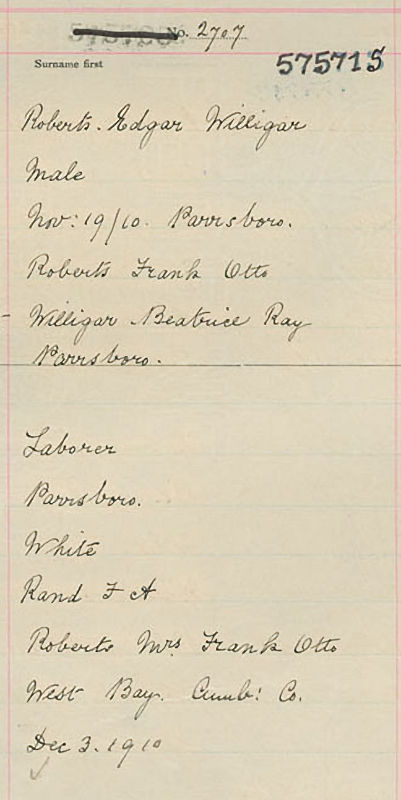 No. 2707
Surname first
575715
Roberts. Edgar Willigar
Male
Nov: 19/10. Parrsboro.
Roberts Frank Otto
Willigar Beatrice Ray
Parrsboro.
Laborer
Parrsboro.
White
Rand F A
Roberts Mrs Frank Otto
West Bay. Cumb: Co.
Dec 3. 1910